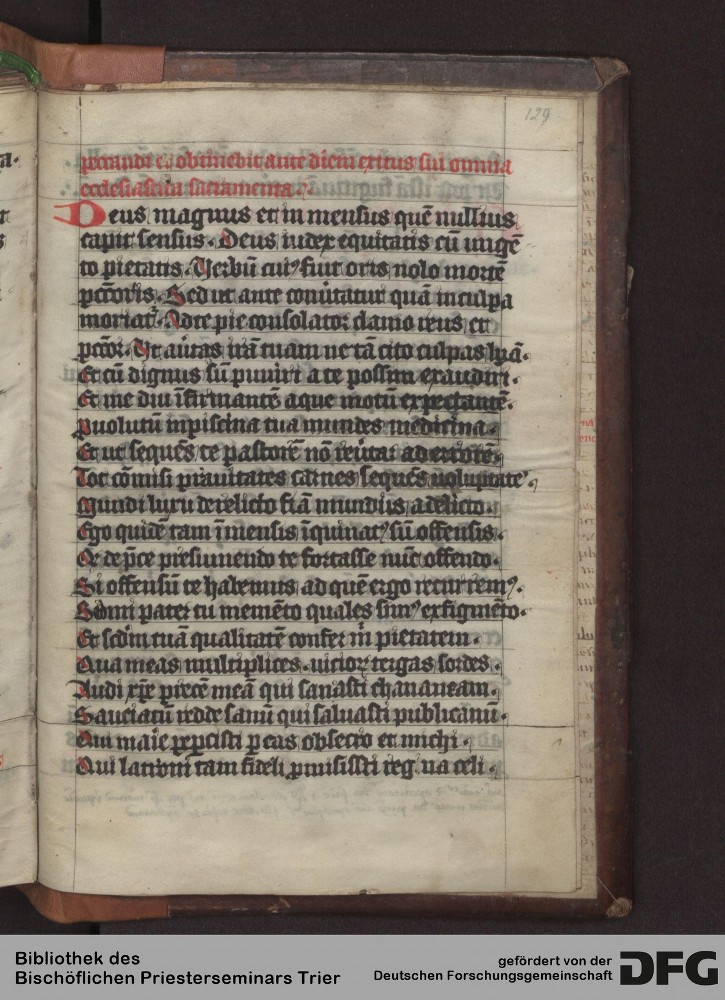 129
peccandi et obtinebit ante diem exitus sui omnia
ecclesiastica sacramenta.
Deus magnus et in mensus quē nullius
capit sensus. Deus iudex equitatis cū ungē
to pietatis. Verbū cui⁹ fiut oris nolo mortē
pctōris. Sed ut ante conūtatur quā in culpa
moriat᷑. Ad te pie consolator clamo reus et
pctōr. Ut aūtas irā tuam ne tā cito culpas
Et cū dignus sū puniri a te possim exaudiri.
Et me diu īfirmantē aque motū expectantē.
puolutū in piscina tua mundes medicina.
Et ut sequēs te pastorē nō reūtar ad errorē.
Tot cōmisi prauitates carnes sequēs uoluptate᷒.
Mundi luxu derelicto fiā mundus a delicto.
Ego quidē tam īmensis īquinat⁹ sū offensis.
Qr de p̄ce presumendo te fortasse nūc offendo.
Si offensū te habemus ad quē ergo recurrem⁹.
S; dn̄i pater tu memēto quales sum⁹ ex figmēto.
Et scd̄m tuā qualitatē confer m̄ pietatem.
Qua meas multiplices uicior tergas sordes.
Audi xp̄e precē meā qui sanasti chananeam.
Sauciatū redde sanū qui saluasti publicanū.
Qui mar̄ie pepcisti pcas obsecro et michi.
Qui latroni tam fideli pmisisti reg na celi.
Bibliothek des
Bischöflichen Priesterseminars Trier
gefördert von der
Deutschen Forschungsgemeinschaft DFG